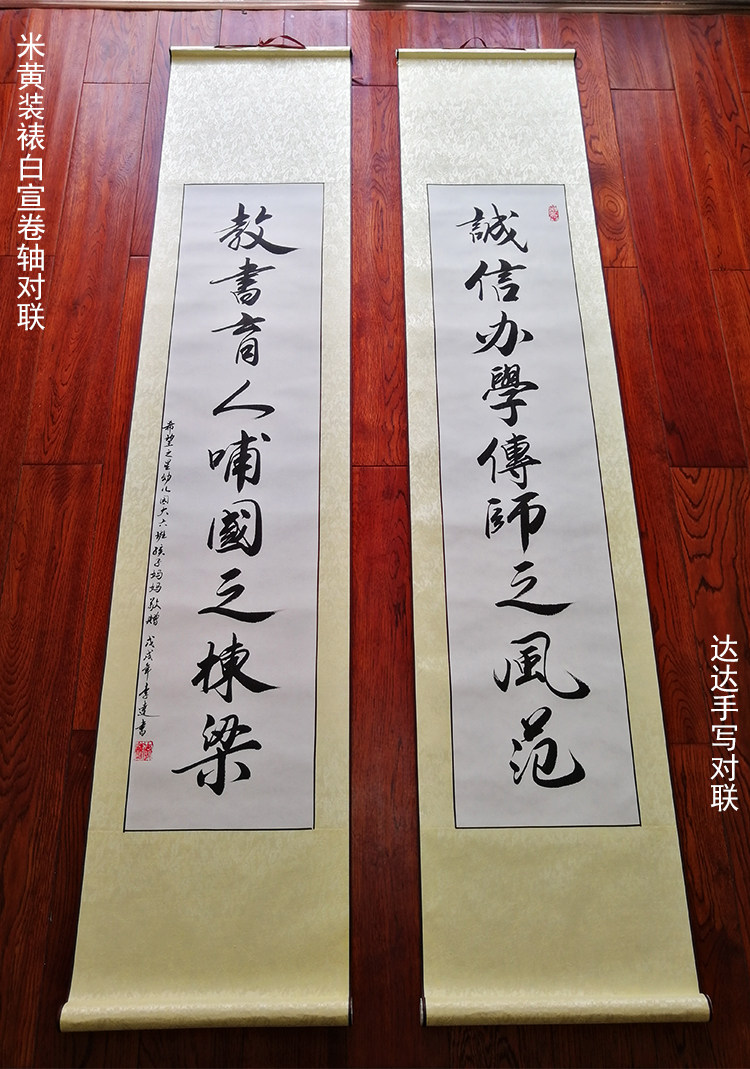 米黄装裱白宣卷轴对联
誠信办學傳師之風范
教書育人哺國之棟梁
希望之星幼儿园大六班孩子妈妈敬赠 戊戌年 李达書
达达手写对联